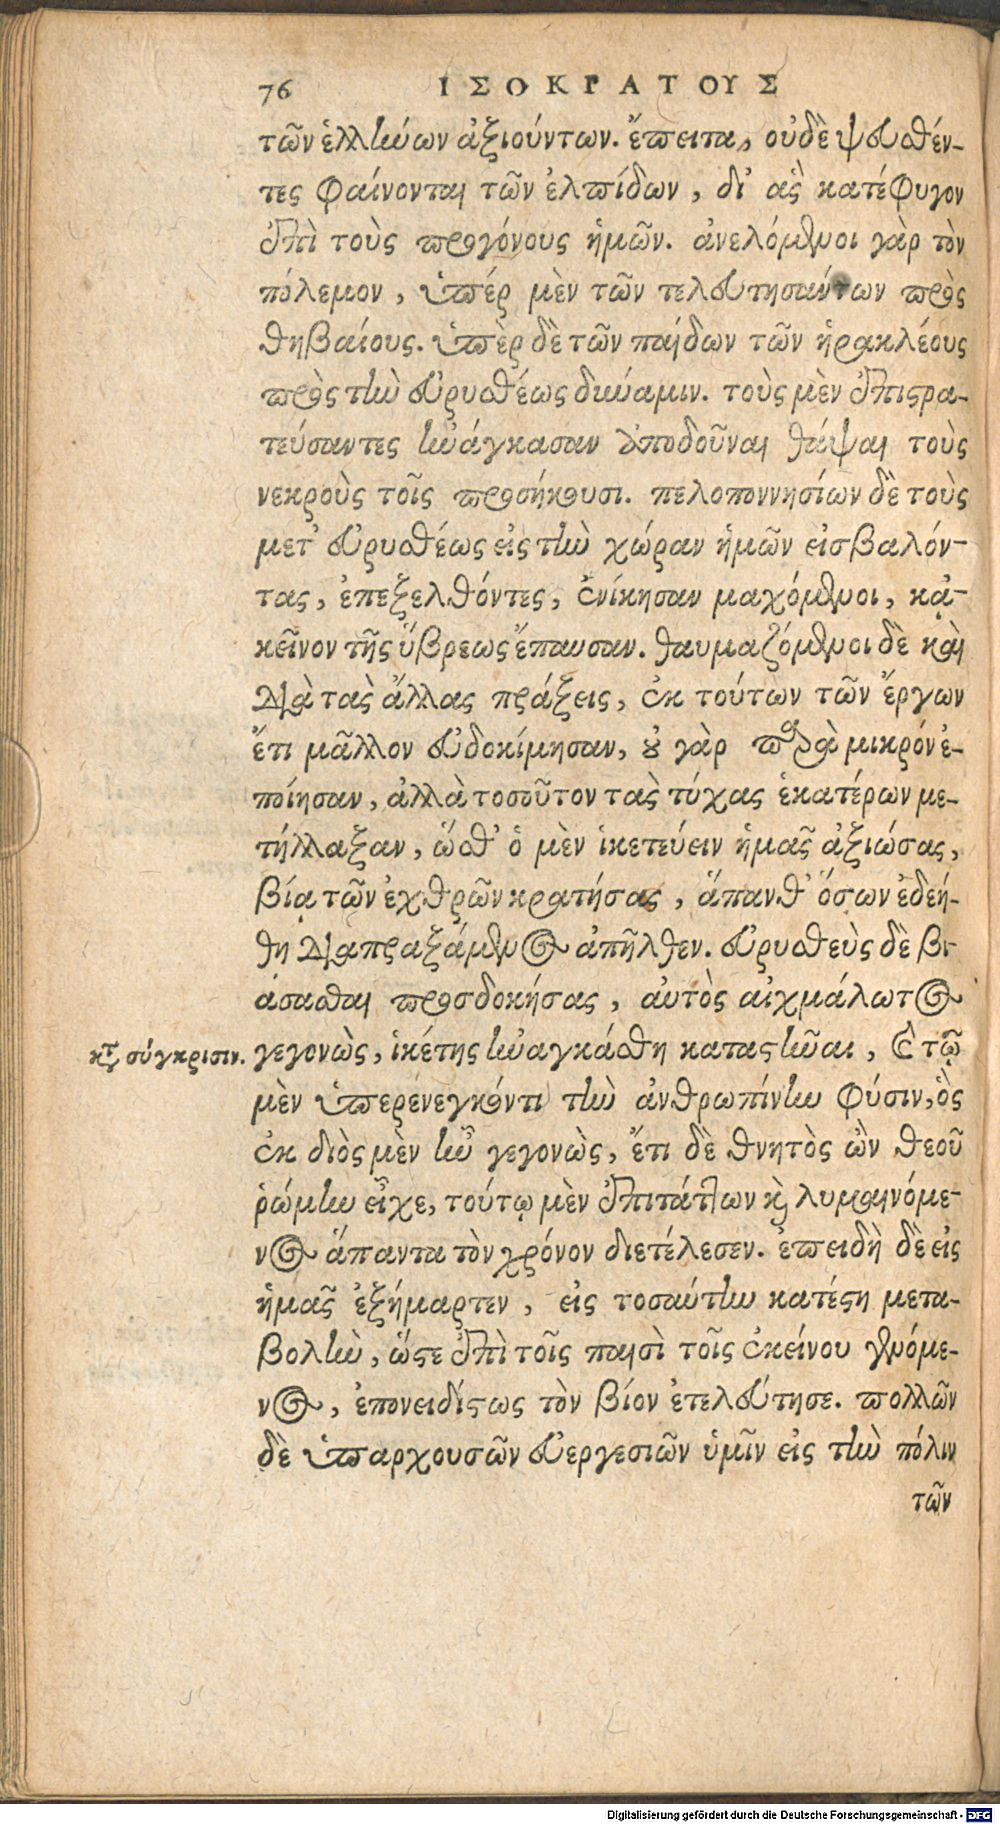 76 ΙΣΟΚΡΑΤΟΥΣ
τῶν ἑλλήνων ἀξιούντων. ἔπειτα, οὐδὲ ψευσθέν-
τες φαίνονται τῶν ἐλπίδων, δι' ἃς κατέφυγον
ἐπὶ τοὺς προγόνους ἡμῶν. ἀνελόμενοι γὰρ τὸν
πόλεμον, ὑπέρ μὲν τῶν τελευτησάντων πρὸς
θηβαίους. ὑπὲρ δὲ τῶν παίδων τῶν ἡρακλέους
πρὸς τὴν εὐρυσθέως δύναμιν. τοὺς μὲν ἐπιστρα-
τεύσαντες ἠνάγκασαν ἀποδοῦναι θάψαι τοὺς
νεκροὺς τοῖς προσήκουσι. πελοποννησίων δὲ τοὺς
μετ' εὐρυσθέως εἰς τὴν χώραν ἡμῶν εἰσβαλόν-
τας, ἐπεξελθόντες, ἐνίκησαν μαχόμενοι, κᾀ-
κεῖνον τῆς ὕβρεως ἔπαυσαν. θαυμαζόμενοι δὲ καὶ
διὰ τὰς ἄλλας πράξεις, ἐκ τούτων τῶν ἔργων
ἔτι μᾶλλον εὐδοκίμησαν, οὐ γὰρ παρὰ μικρόν ἐ-
ποίησαν, ἀλλὰ τοσοῦτον τὰς τύχας ἑκατέρων με-
τήλλαξαν, ὥσθ' ὁ μὲν ἱκετεύειν ἡμᾶς ἀξιώσας,
βίᾳ τῶν ἐχθρῶν κρατήσας, ἅπανθ' ὅσων ἐδεή-
θη διαπραξάμενος ἀπῆλθεν. εὐρυσθεὺς δὲ βι
άσασθαι προσδοκήσας, αὐτὸς αἰχμάλωτος
κτ σύγκρισιν. γεγονὼς, ἱκέτης ἠναγκάσθη καταστῆναι, καὶ τῷ
μὲν ὑπερενεγκόντι τὴν ἀνθρωπίνην φύσιν, ὃς
ἐκ διὸς μὲν ἦν γεγονὼς, ἔτι δὲ θνητὸς ὢν θεοῦ
ῥώμην εἶχε, τούτῳ μὲν ἐπιτάττων καὶ λυμαινόμε-
νος ἅπαντα τὸν χρόνον διετέλεσεν. ἐπειδὴ δὲ εἰς
ἡμᾶς ἐξήμαρτεν, εἰς τοσαύτην κατέστη μετα-
βολὴν, ὥστε ἐπὶ τοῖς παισὶ τοῖς ἐκείνου γενόμε-
νος, ἐπονειδίστως τὸν βίον ἐτελεύτησε. πολλῶν
δὲ ὑπαρχουσῶν εὐεργεσιῶν ὑμῖν εἰς τὴν πόλιν
τῶν
Digitalisierung gefördert durch die Deutsche Forschungsgemeinschaft - DFG